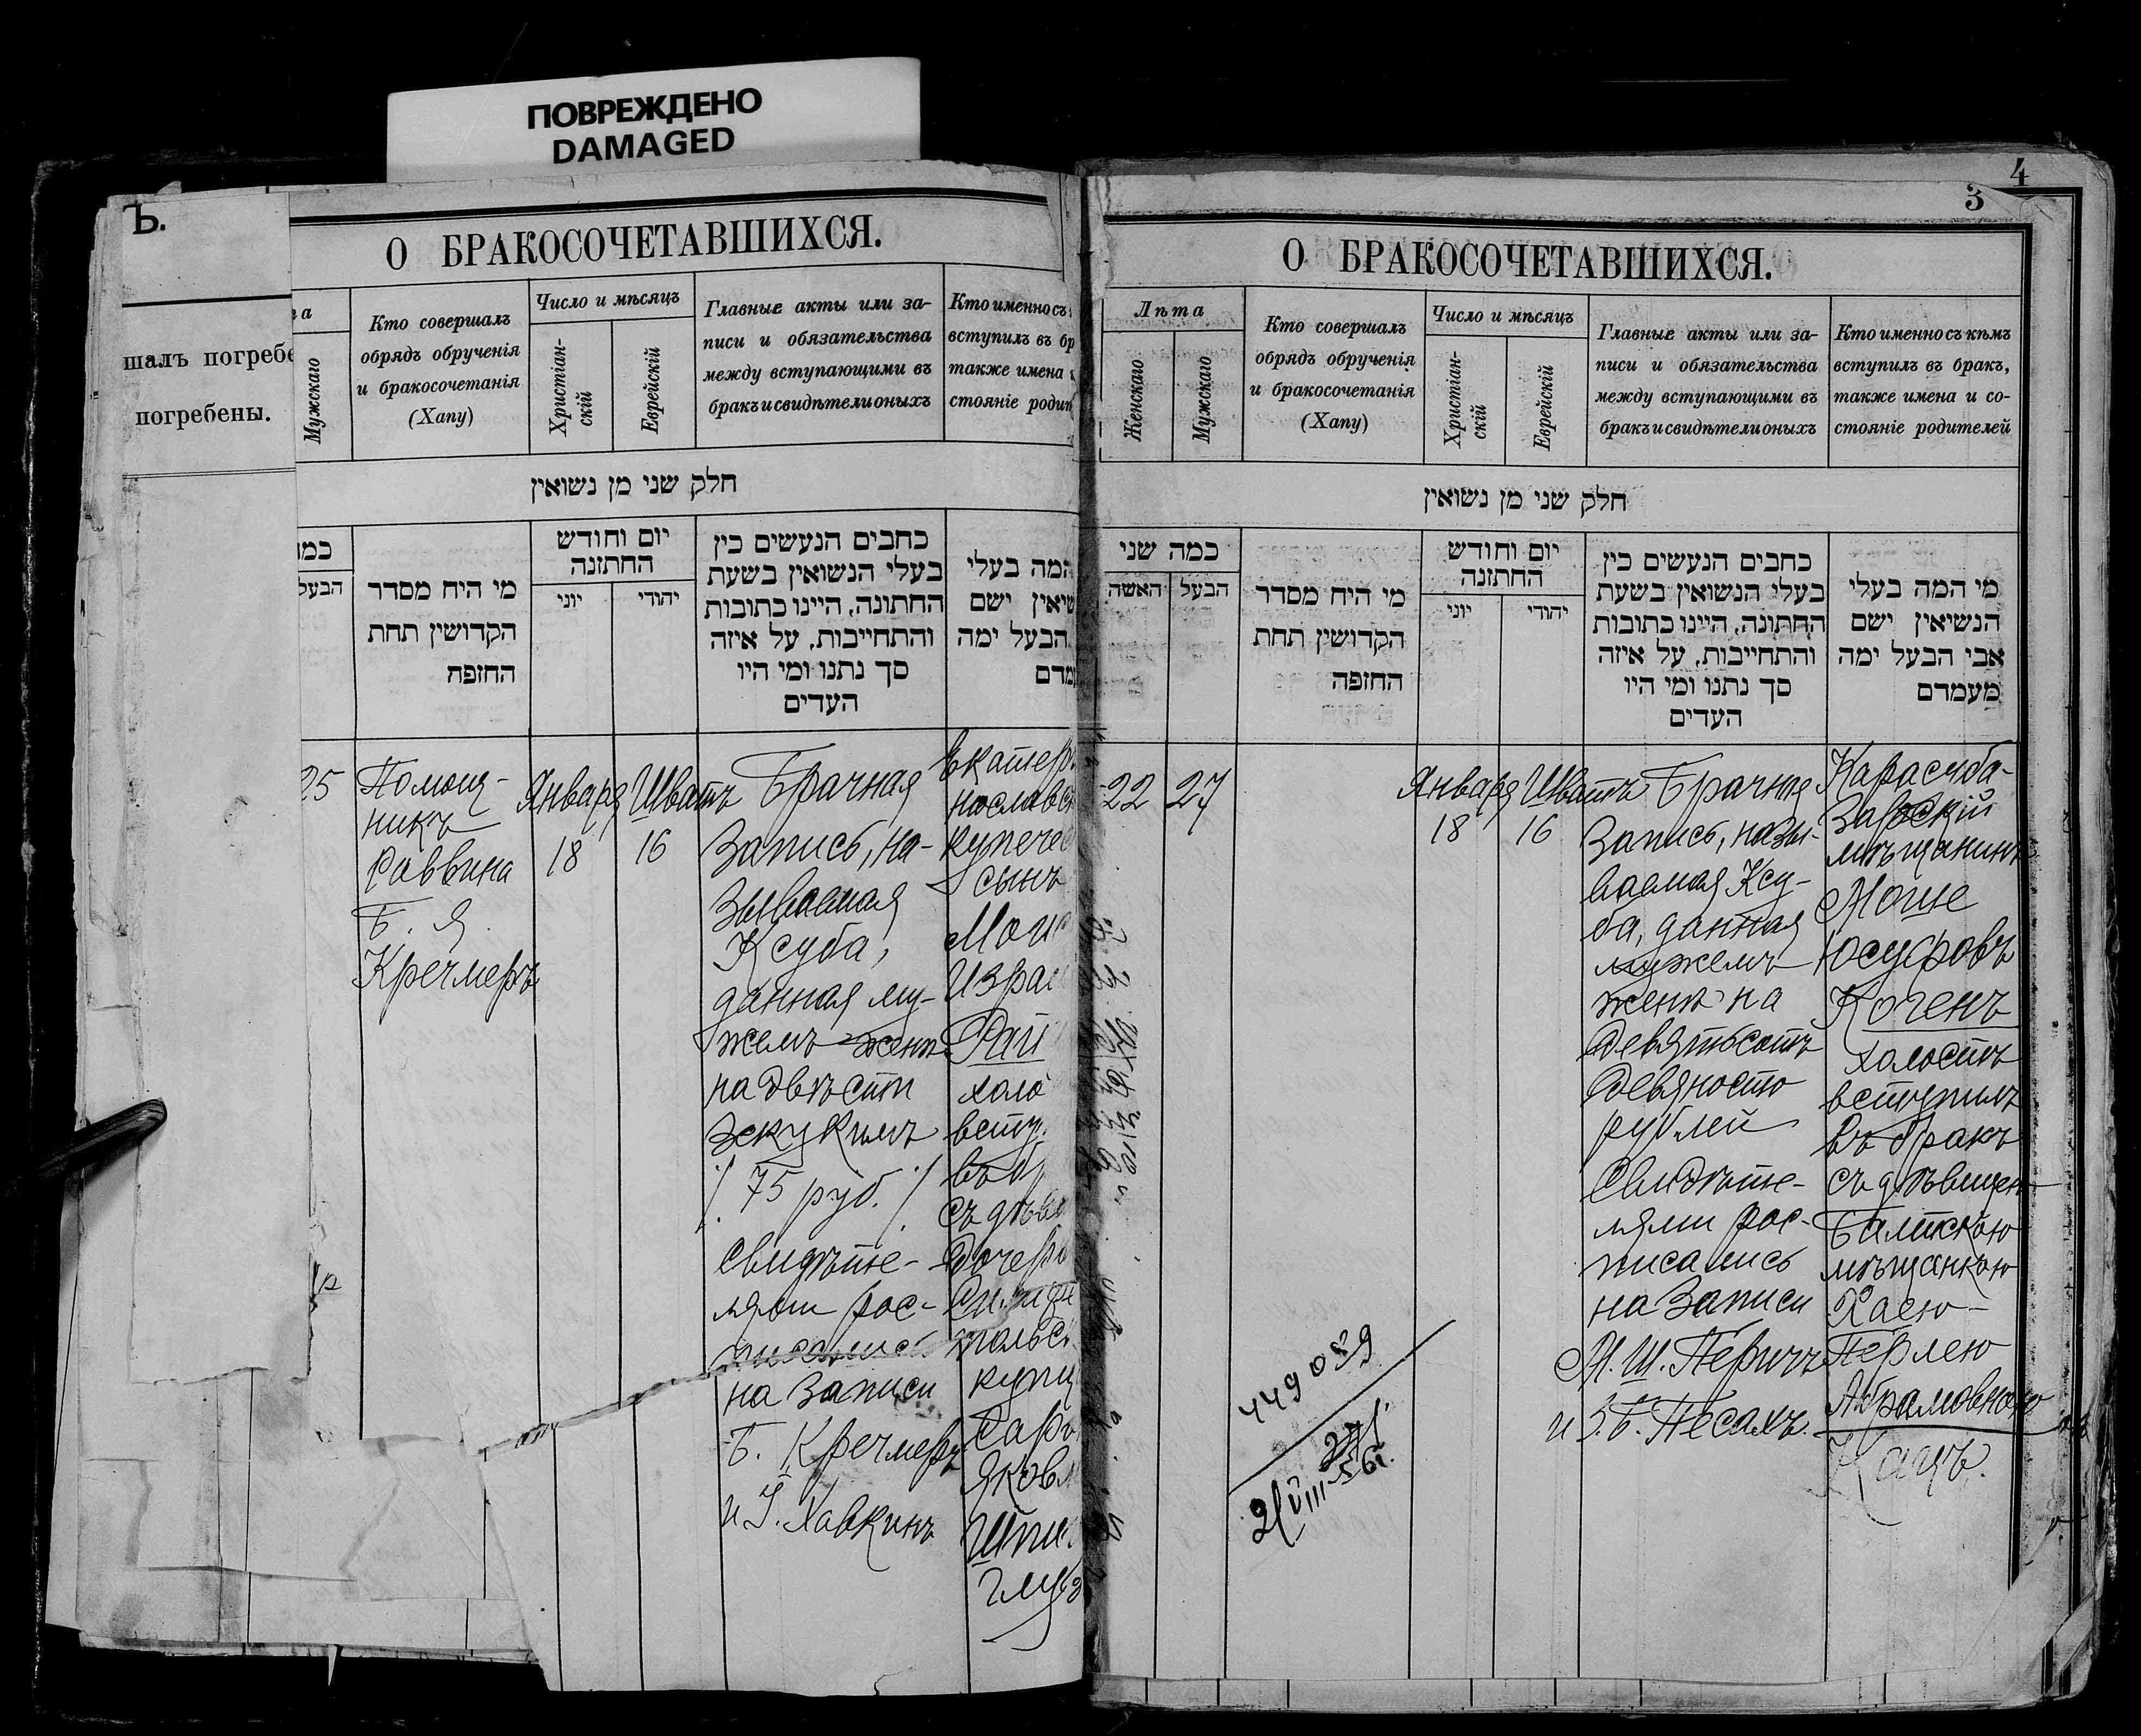 ПОВРЕЖДЕНО
DAMAGED
Ъ.
шалъ погребе
погребены.
О БРАКОСОЧЕТАВШИХСЯ.
та
Мужскаго
Кто совершалъ
обрядъ обрученія
и бракосочетанія
(Хапу)
Число и мѣсяцъ
Христіан-
скій
Еврейскій
Главные акты или за-
писи и обязательства
между вступающими въ
бракъ и свидѣтели оныхъ
Кто именно съ
вступилъ въ бр
также имена и
стояніе родит
חלק שני מן נשואין
כמו
הבעל
מי היח מסדר
הקדושין תחת
החזפח
יום וחודש
החתזנה
יוני
יהודי
כחבים הנעשים כין
בעלי הנשואין בשעת
החתונה, היינו כתובות
והתחייבות, על איזה
סך נתנו ומי היו
העדים
המה בעלי
שיאין ישם
הבעל ימה
מדם
25
Помощ-
никъ
Раввина
Б. Я.
Кречмеръ
Января
18
Шватъ
16
Брачная
Запись, на-
зываемая
Ксуба,
данная му-
жемъ женѣ
на двѣсти
Зекукимъ
/. 75 руб. /.
Свидѣте-
лями рос-
писались
на Записи
Б. Кречмеръ
и І. Хавкинъ
Екатери
нославск
купечес
сынъ
Мои
Израи
Рай
холо
всту
въ бр
съ дѣви
дочерью
польск
купц
Сарр
Яковл
Шпи
глуз
4
3
О БРАКОСОЧЕТАВШИХСЯ.
Лѣта
Женскаго
Мужскаго
Кто совершалъ
обрядъ обрученія
и бракосочетанія
(Хапу)
Число и мѣсяцъ
Христіан-
скій
Еврейскій
Главные акты или за-
писи и обязательства
между вступающими въ
бракъ и свидѣтели оныхъ
Кто именно съ кѣмъ
вступилъ въ бракъ,
также имена и со-
стояніе родителей
חלק שני מן נשואין
כמה שני
האשה
הבעל
מי היח מסדר
הקדושין תחת
החזפה
יום וחודש
החתזנה
יוני
יהודי
כחבים הנעשים כין
בעלי הנשואין בשעת
החתונה, היינו כתובות
והתחייבות, על איזה
סך נתנו ומי היו
העדים
מי המה בעלי
הנשיאין ישם
אבי הבעל ימה
מעמדם
22
27
Января
18
Шватъ
16
Брачная
Запись, назы-
ваемая Ксу-
ба, данная
мужемъ
женѣ на
девятьсотъ
девяносто
рублей
Свидѣте-
лями рос-
писались
на Записи
М. Ш. Перичъ
и З. Б. Песахъ.
Карасуба-
зарскій
мѣщанинъ
Моше
Юсуфовъ
Коченъ
холостъ
вступилъ
въ бракъ
съ дѣвицею
Балтскою
мѣщанкою
Хаею-
Перлею
Абрамовною
Кацъ.
449 039
21/VIII-56г.